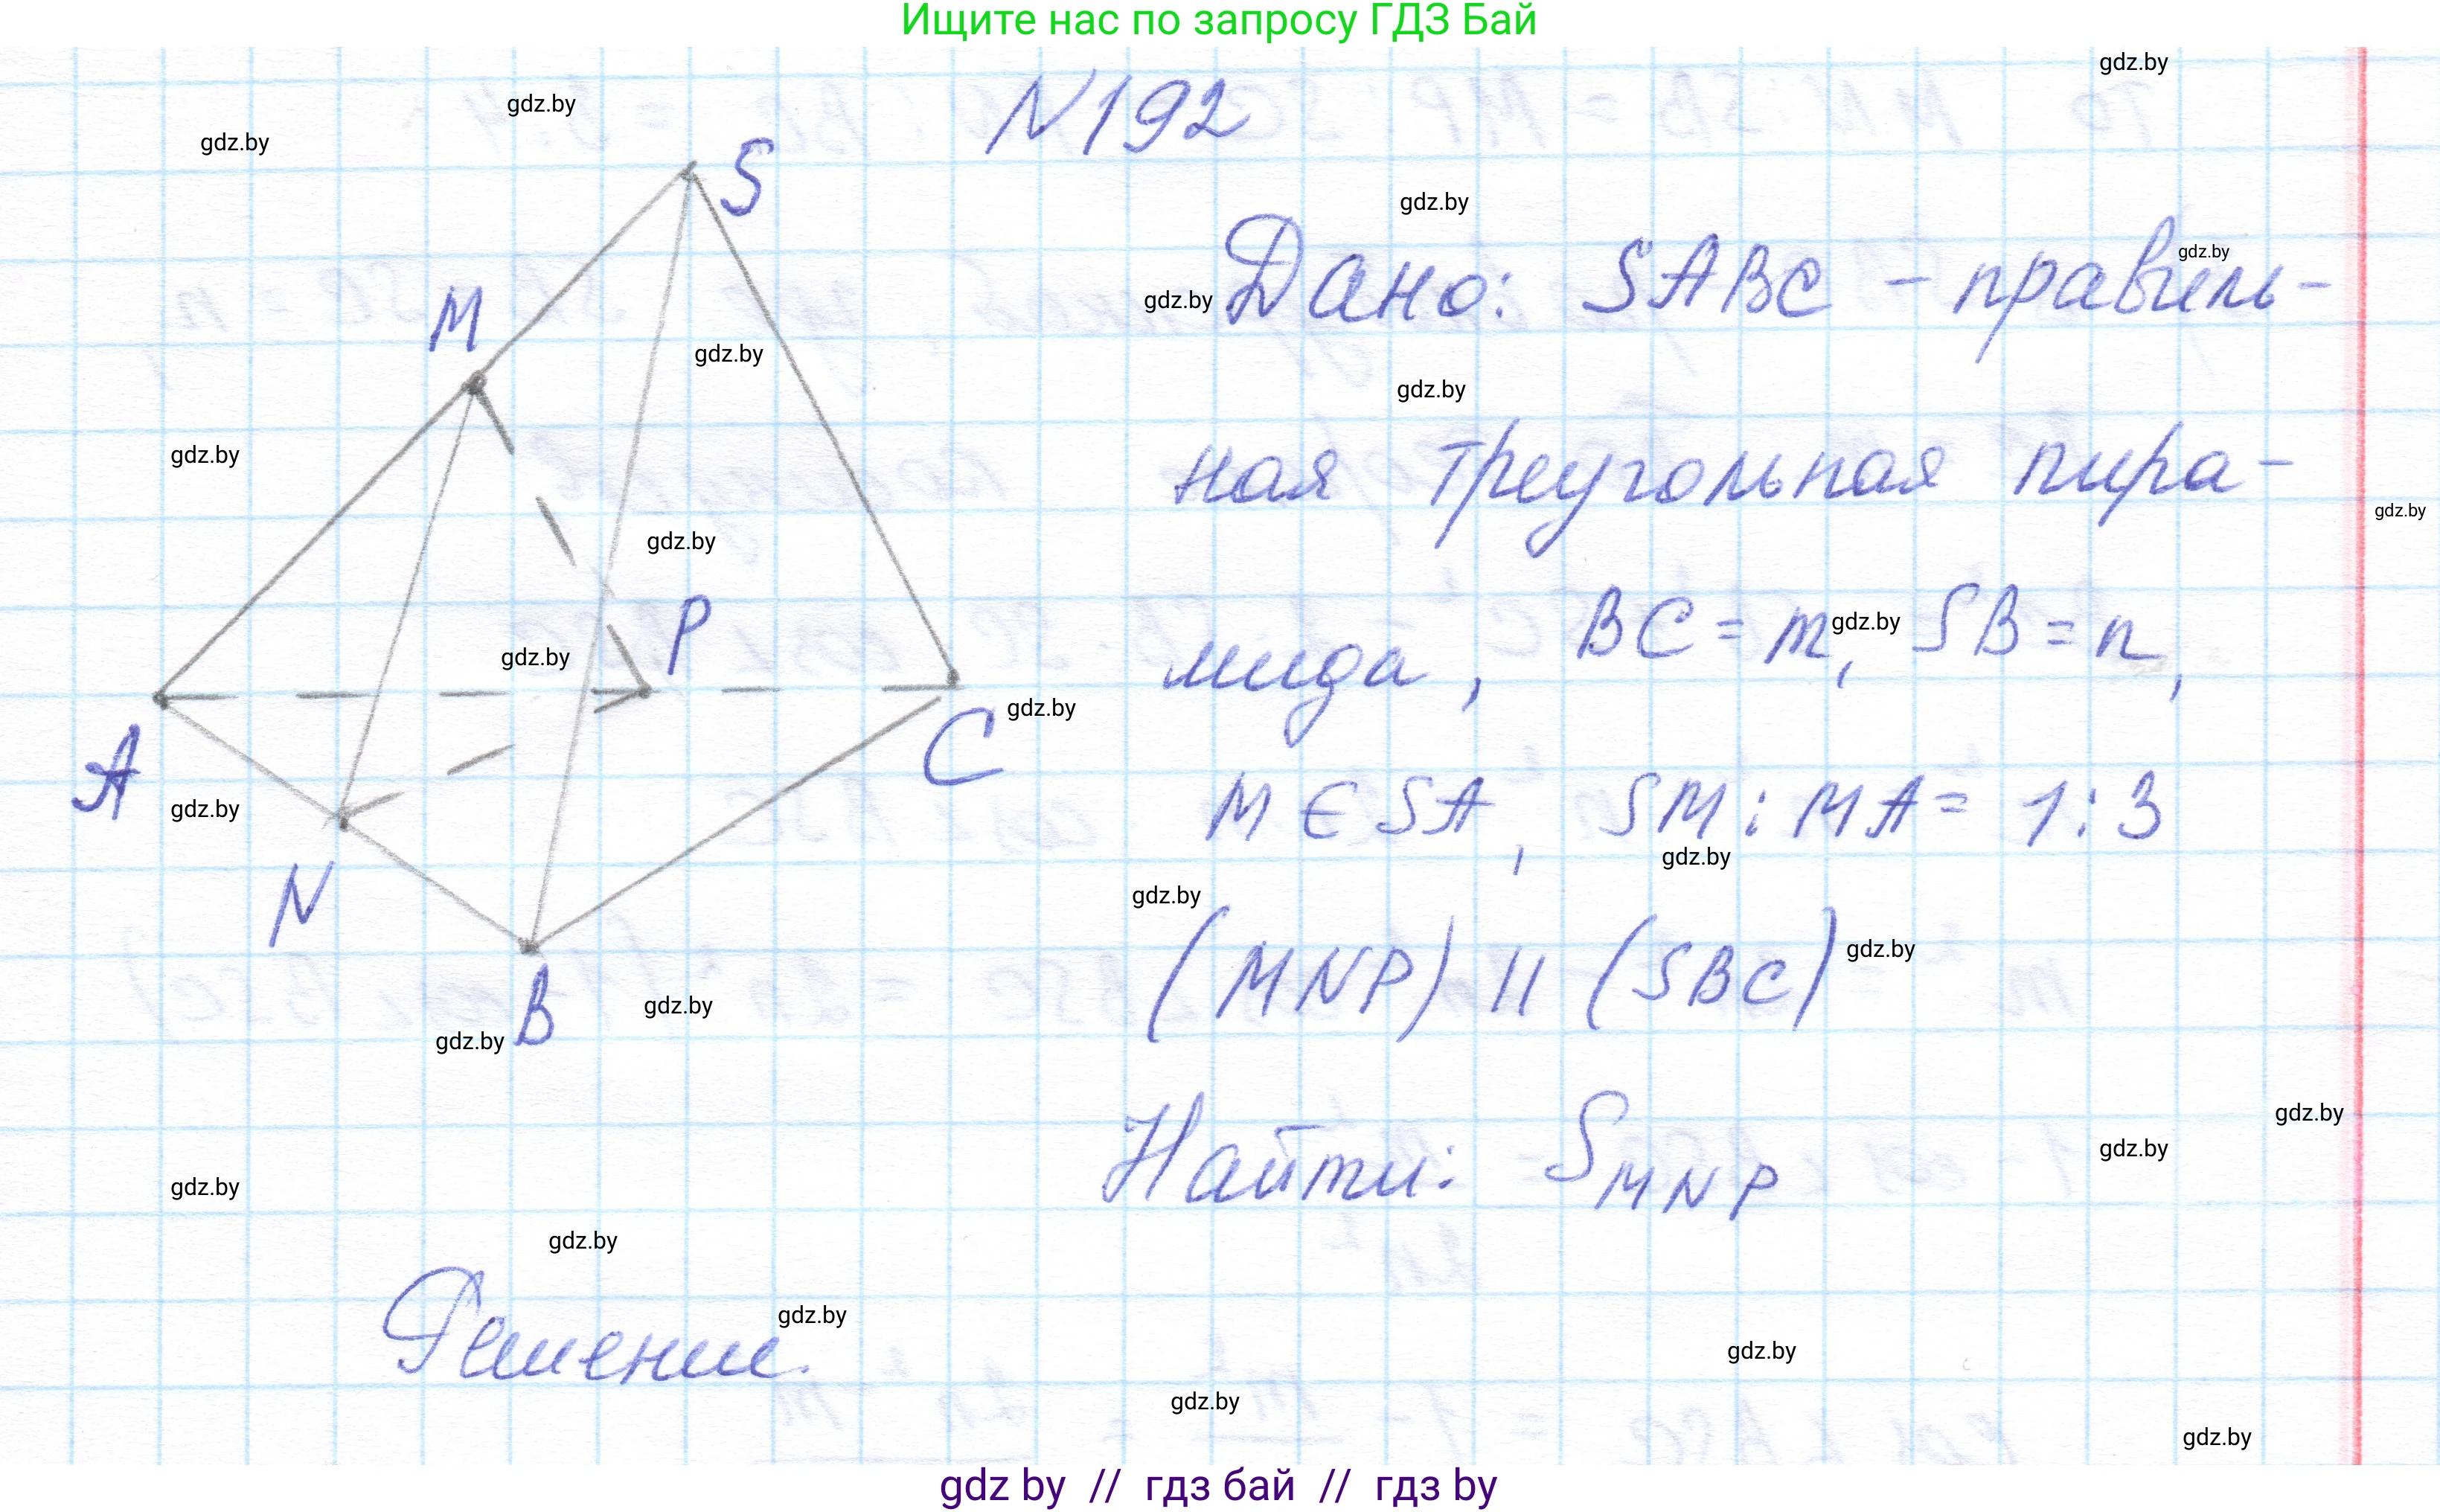 Ищите нас по запросу ГДЗ Бай
gdz.by
gdz.by
gdz.by
N192
S
gdz.by
gdz.by
Дано: SABC - правиль-
gdz.by
M
gdz.by
gdz.by
gdz.by
ная треугольная пира-
gdz.by
gdz.by
P
gdz.by
мида, BC = m, SB = n,
gdz.by
A
C
gdz.by
gdz.by
M ∈ SA, SM : MA = 1:3
gdz.by
N
gdz.by
(MNP) || (SBC)
gdz.by
B
gdz.by
gdz.by
Найти: S MNP
gdz.by
gdz.by
gdz.by
gdz.by
Решение.
gdz.by
gdz.by
gdz.by
gdz.by
gdz by // гдз бай // гдз by